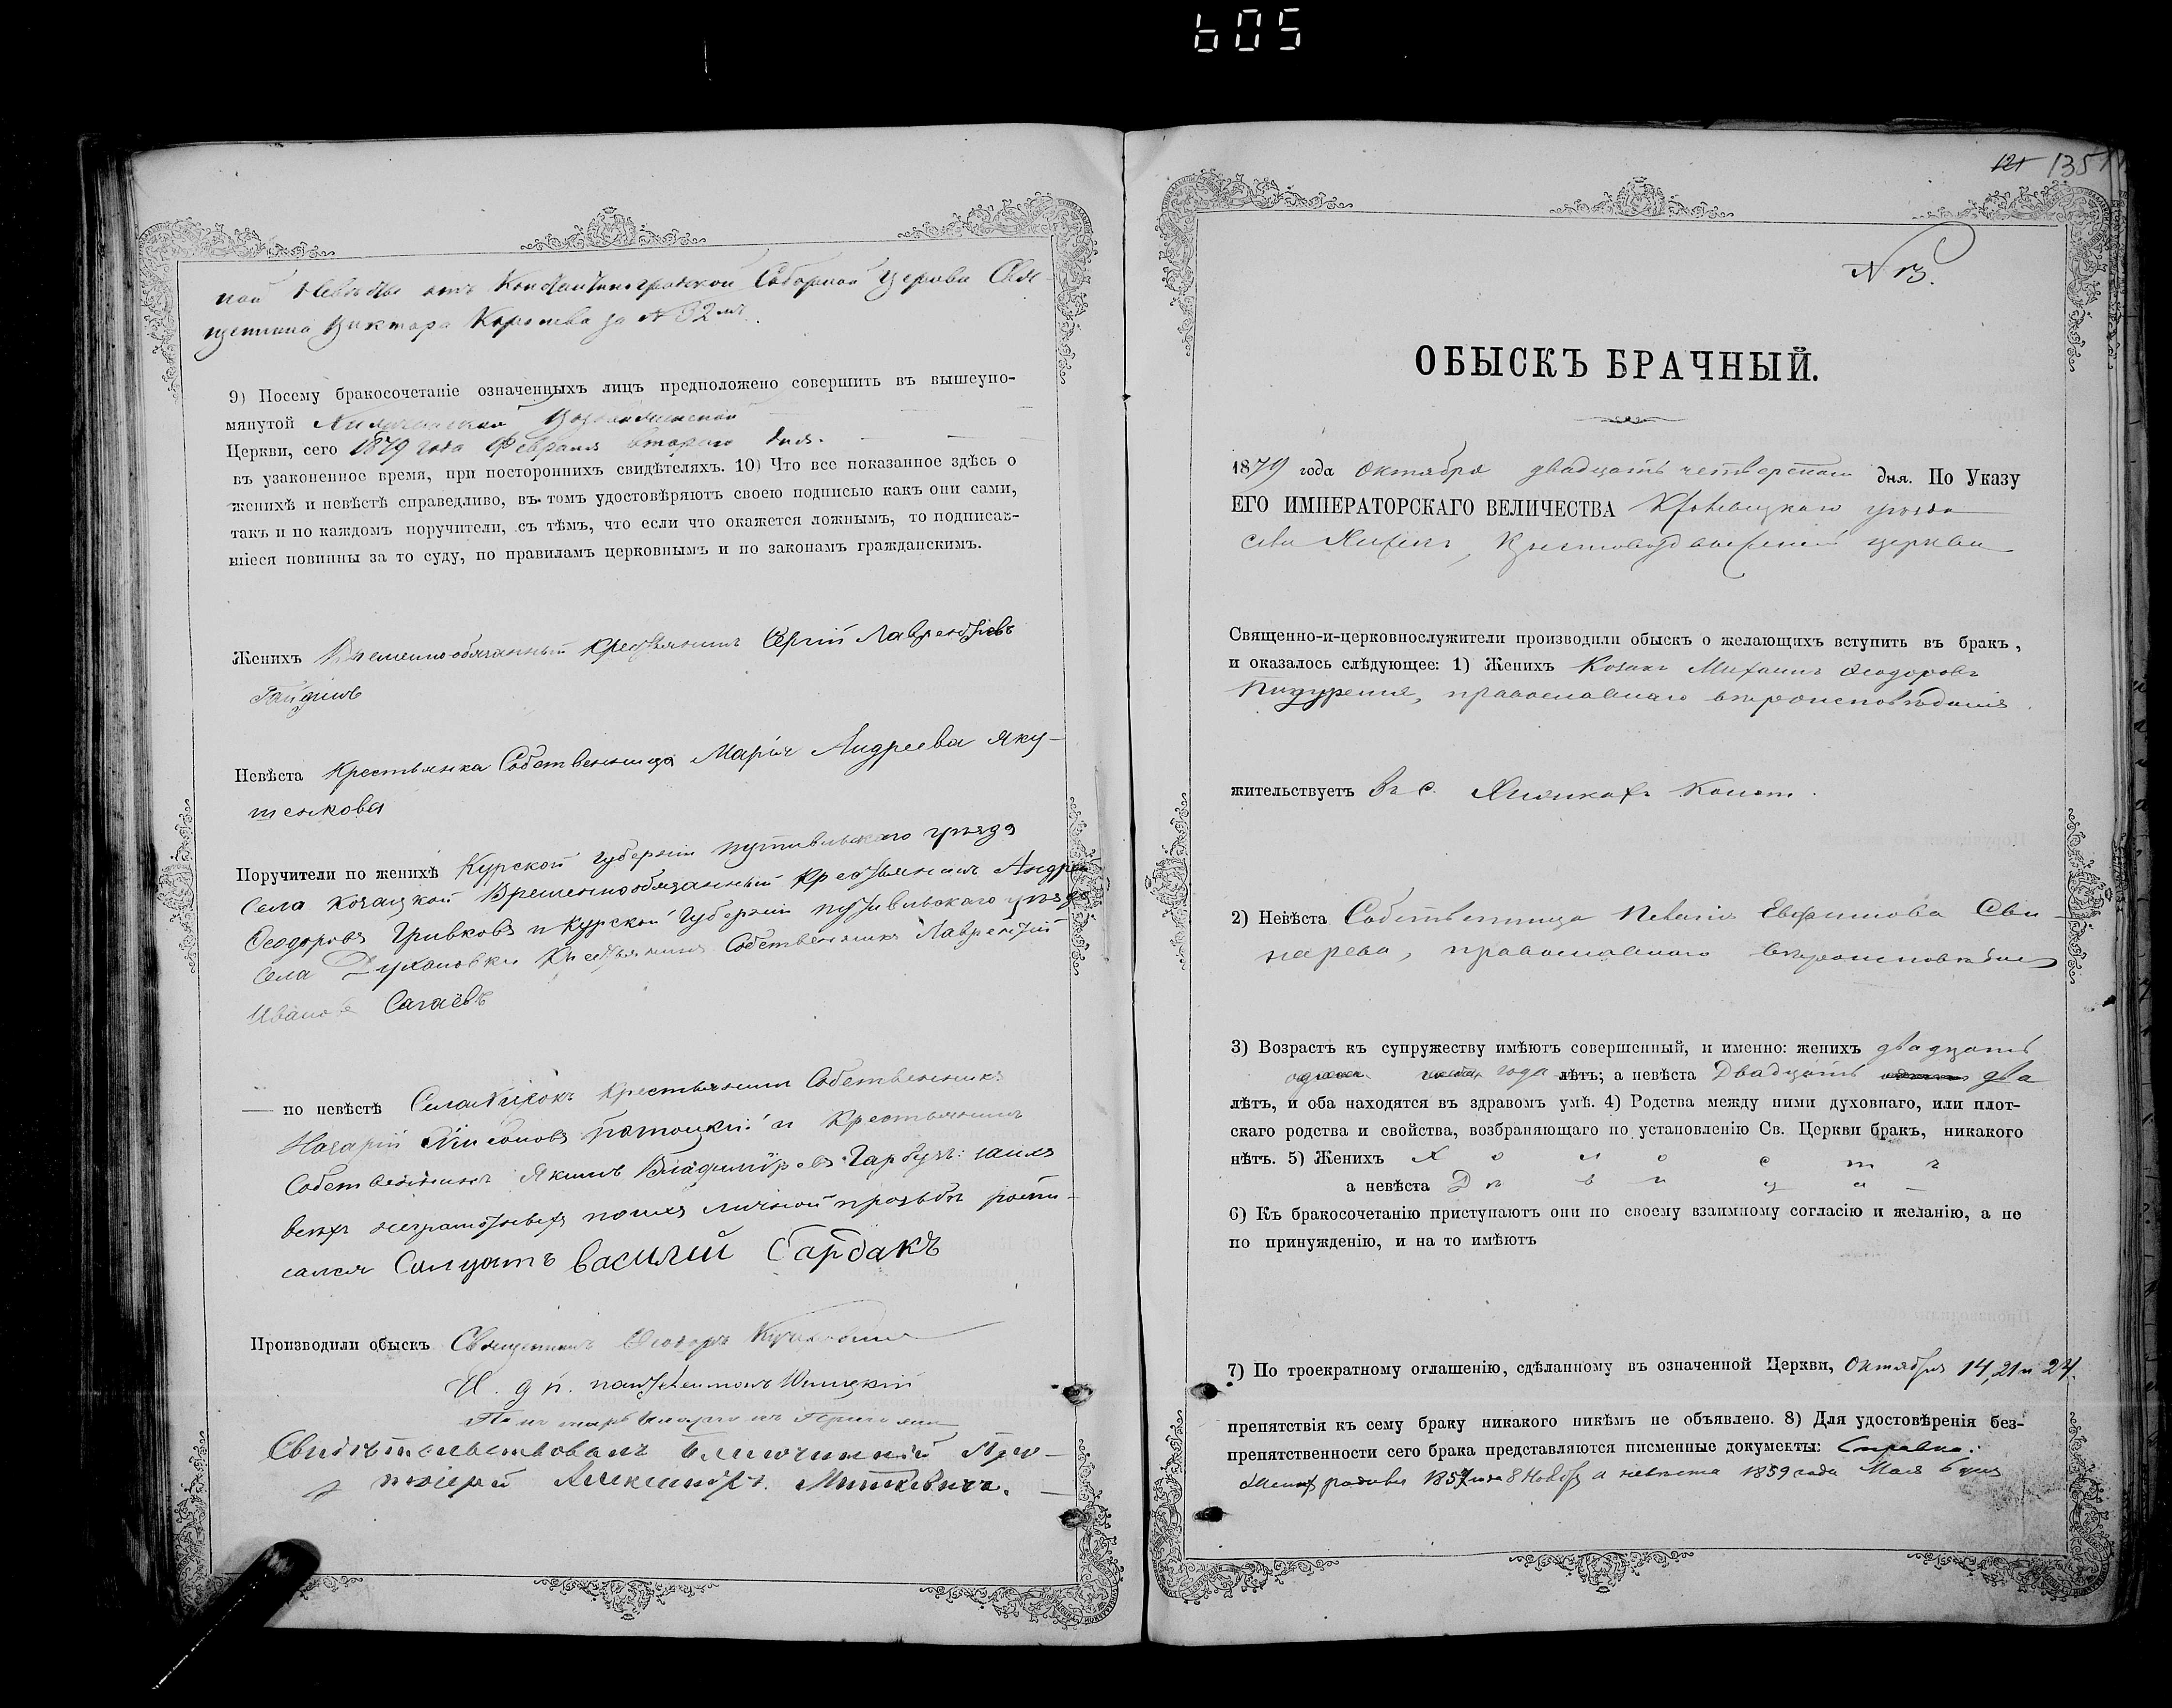 605
ной Невѣсты отъ Константиноградской Соборной Церкви Свя-
щенника Виктора за № 32мъ.
9) Посему бракосочетаніе означенныхъ лицъ предположено совершить въ вышеупо-
мянутой
Церкви, сего 1879 года Февраля втораго дня.
въ узаконенное время, при постороннихъ свидѣтеляхъ. 10) Что все показанное здѣсь о
женихѣ и невѣстѣ справедливо, въ томъ удостовѣряютъ своею подписью какъ они сами,
такъ и по каждомъ поручители, съ тѣмъ, что если что окажется ложнымъ, то подписав-
шіеся повинны за то суду, по правиламъ церковнымъ и по законамъ гражданскимъ.
Женихъ Временно-обязанный крестьянинъ Сергій Лаврентіевъ
Невѣста Крестьянка Собственница Марія Андреева Яку-
шенкова
Поручители по женихѣ Курской губерніи путивльскаго уѣзда
Села Козацкой Временнообязанный крестьянинъ Андрей
Ѳеодоровъ Гривковъ и Курской Губерніи путивльскаго уѣзда
Села Духановки Крестьянинъ Собственникъ Лаврентій
Ивановъ Сагаевъ
— по невѣстѣ Села крестьянинъ Собственникъ
Назарій и Крестьянинъ
Собственникъ Якимъ Владиміровъ Гарбузъ: за
всѣхъ неграмотныхъ по ихъ личной прозьбѣ роспи-
сался Салдатъ Василій Сардакъ
Производили обыскъ Священникъ Ѳеодоръ
И. д. п.
Свидѣтельствовалъ Благочинный Про-
тоіерей Александръ Миткевичъ.
121 135
N 13.
ОБЫСКЪ БРАЧНЫЙ.
1879 года Октября двадцать четвертаго дня. По Указу
ЕГО ИМПЕРАТОРСКАГО ВЕЛИЧЕСТВА Кролевецкаго уѣзда
села Хижекъ, Крестовоздвиженской церкви
Священно-и-церковнослужители производили обыскъ о желающихъ вступить въ бракъ,
и оказалось слѣдующее: 1) Женихъ Козакъ Михаилъ Ѳеодоровъ
православнаго вѣроисповѣданія
жительствуетъ въ с. Хижкахъ Конот.
2) Невѣста Собственница Пелагія Евфимова Сви-
нарева, православнаго вѣроисповѣданія
3) Возрастъ къ супружеству имѣютъ совершенный, и именно: женихъ двадцать
года лѣтъ; а невѣста Двадцать два
лѣтъ, и оба находятся въ здравомъ умѣ. 4) Родства между ними духовнаго, или плот-
скаго родства и свойства, возбраняющаго по установленію Св. Церкви бракъ, никакого
нѣтъ. 5) Женихъ Холостъ
а невѣста Дѣвица
6) Къ бракосочетанію приступаютъ они по своему взаимному согласію и желанію, а не
по принужденію, и на то имѣютъ
7) По троекратному оглашенію, сдѣланному въ означенной Церкви, Октября 14, 21 и 24.
препятствія къ сему браку никакого никѣмъ не объявлено. 8) Для удостовѣренія без-
препятственности сего брака представляются писменные документы: Справка:
Женихъ родился 1857 года 8 Нояб, а невѣста 1859 года Мая 6 дня